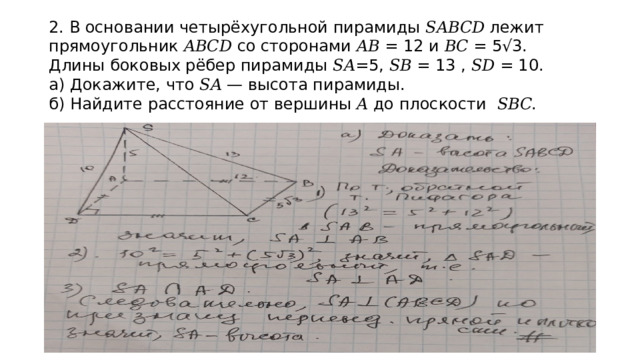 2. В основании четырёхугольной пирамиды SABCD лежит
прямоугольник ABCD со сторонами AB = 12 и BC = 5√3.
Длины боковых рёбер пирамиды SA=5, SB = 13 , SD = 10.
а) Докажите, что SA — высота пирамиды.
б) Найдите расстояние от вершины A до плоскости SBC.
S
а) Доказать:
SA - высота SABCD
Доказательство:
10
5
13
A
12
B
5√3
D
C
1) По т., обратной
т. Пифагора
(13² = 5² + 12²)
Δ SAB - прямоугольный,
значит, SA ⊥ AB
2). 10² = 5² + (5√3)², значит, Δ SAD —
прямоугольный, т.е.
SA ⊥ AD.
3) SA ∩ AD.
Следовательно, SA ⊥ (ABCD) по
признаку перпенд. прямой и
значит, SA - высота.